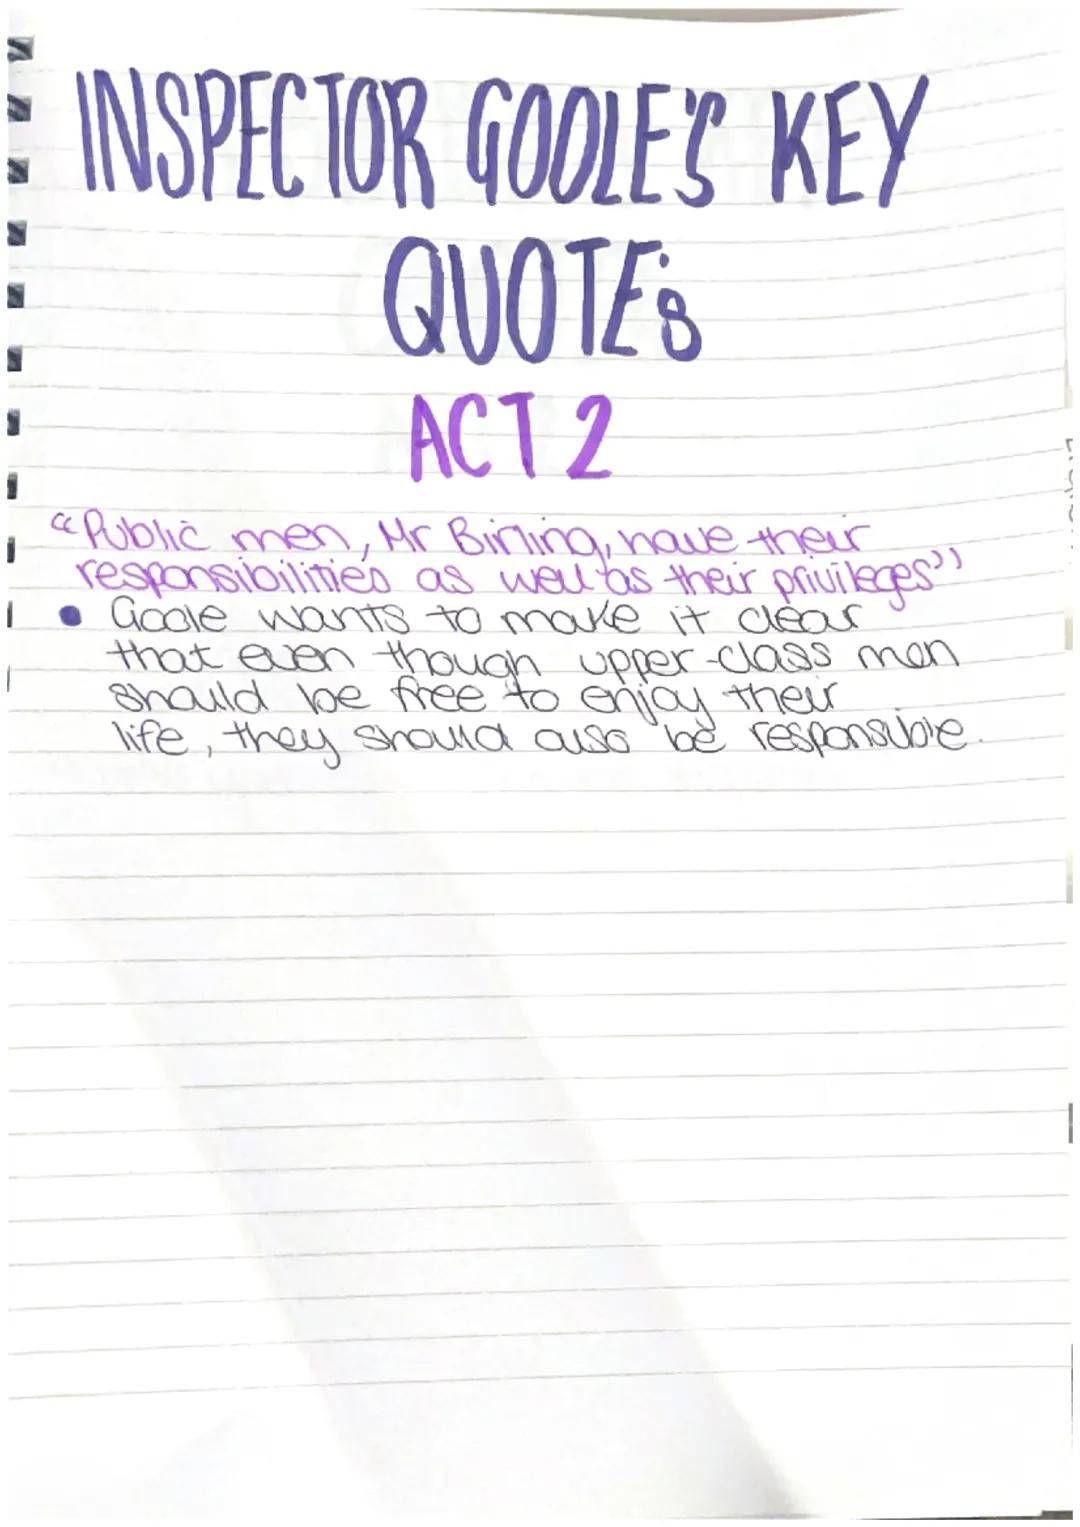 INSPECTOR GOOLE'S KEY
QUOTE's
ACT 2
"Public men, Mr Birling, have their
responsibilities as well as their privileges"
• Goole wants to make it clear
that even though upper-class men
should be free to enjoy their
life, they should also be responsible.